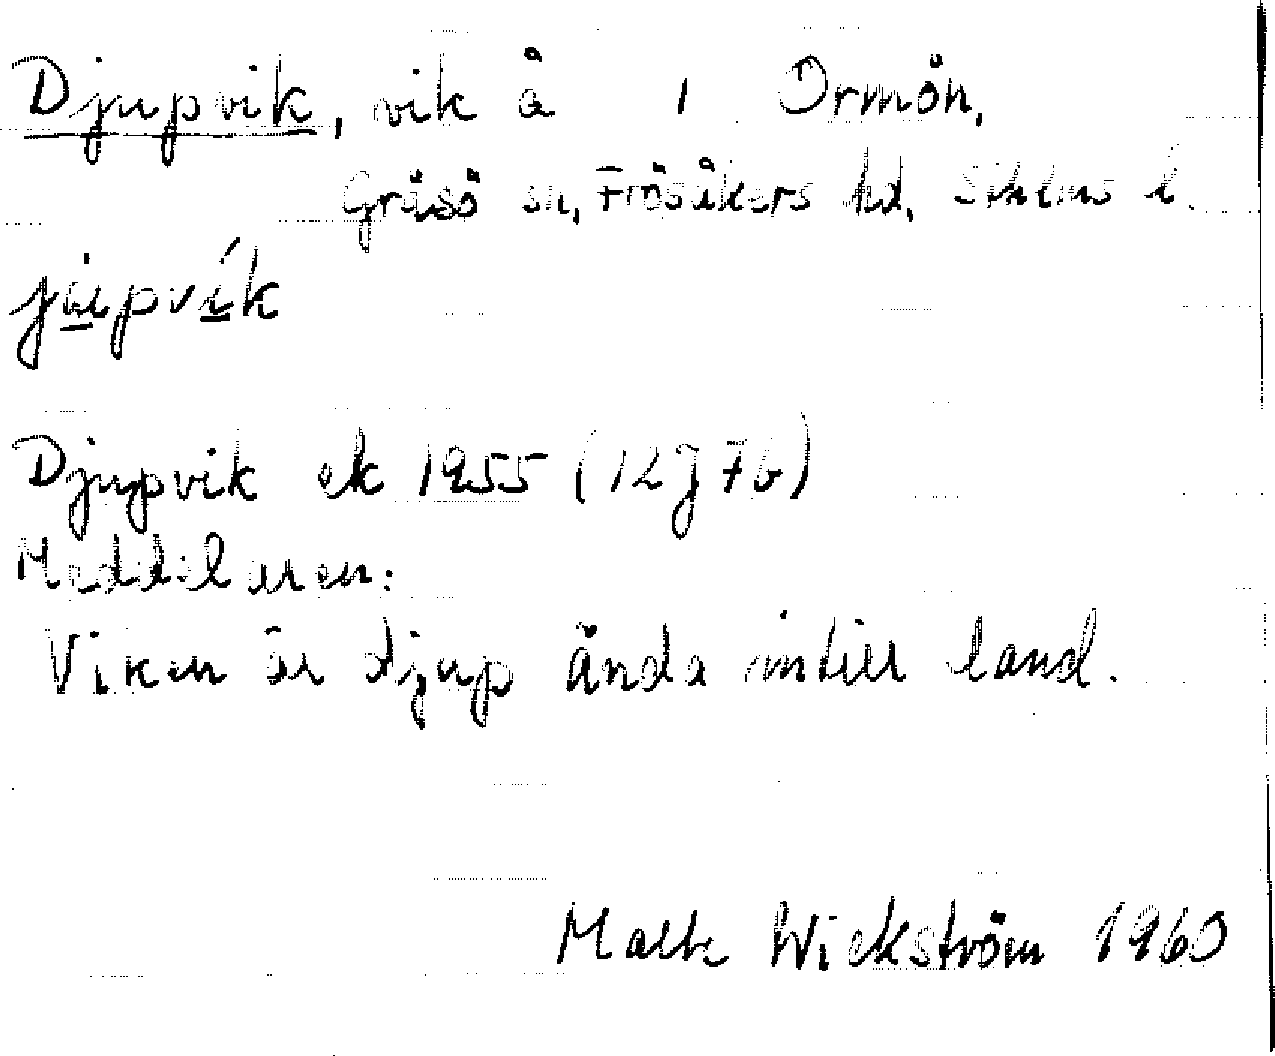 Djupvik, vik å 1 Ormön,
Gräsö sn, Frösåkers hd, Sthlms l.
jupvík
Djupvik ek 1955 (12J7b)
Meddelaren:
Viken är djup ända intill land.
Malte Wickström 1960